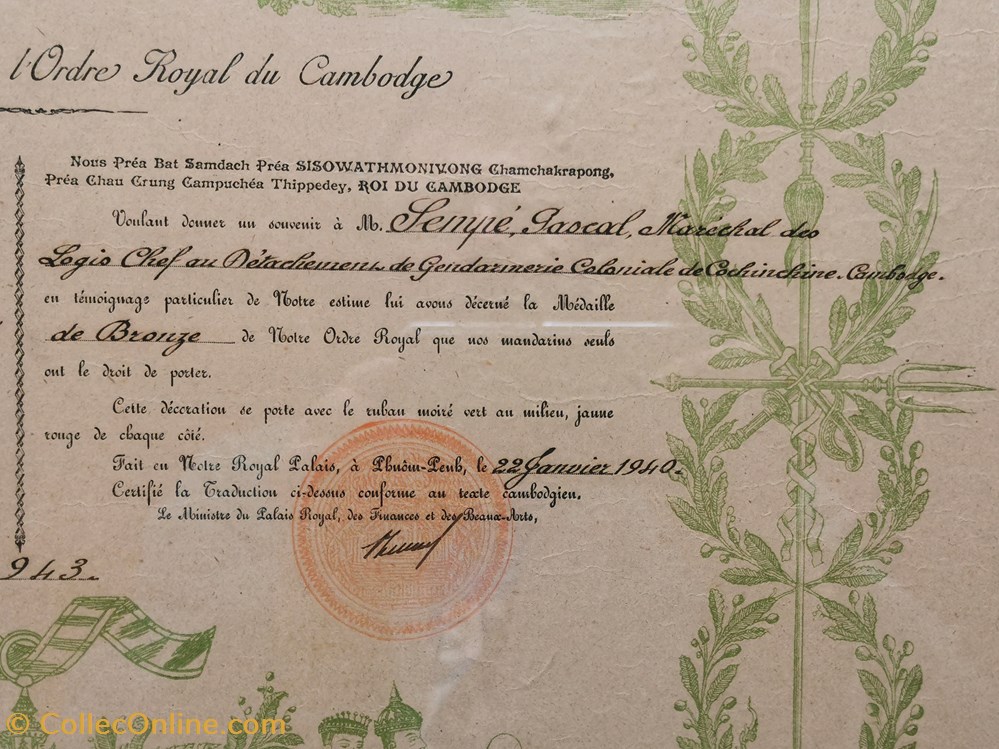 l'Ordre Royal du Cambodge
Nous Préa Bat Samdach Préa SISOWATHMONIVONG Chamchakrapong,
Préa Chau Crung Campuchéa Thippedey, ROI DU CAMBODGE
Voulant donner un souvenir à M. Sempé, Pascal, Maréchal des
Logis Chef au Détachement de Gendarmerie Coloniale de Cochinchine-Cambodge.
en témoignage particulier de Notre estime lui avons décerné la Médaille
de Bronze de Notre Ordre Royal que nos mandarins seuls
ont le droit de porter.
Cette décoration se porte avec le ruban moiré vert au milieu, jaune
rouge de chaque côté.
Fait en Notre Royal Palais, à Phnôm-Penh, le 22 Janvier 1940.
Certifié la Traduction ci-dessus conforme au texte cambodgien.
Le Ministre du Palais Royal, des Finances et des Beaux-Arts,
943.
© CollecOnline.com